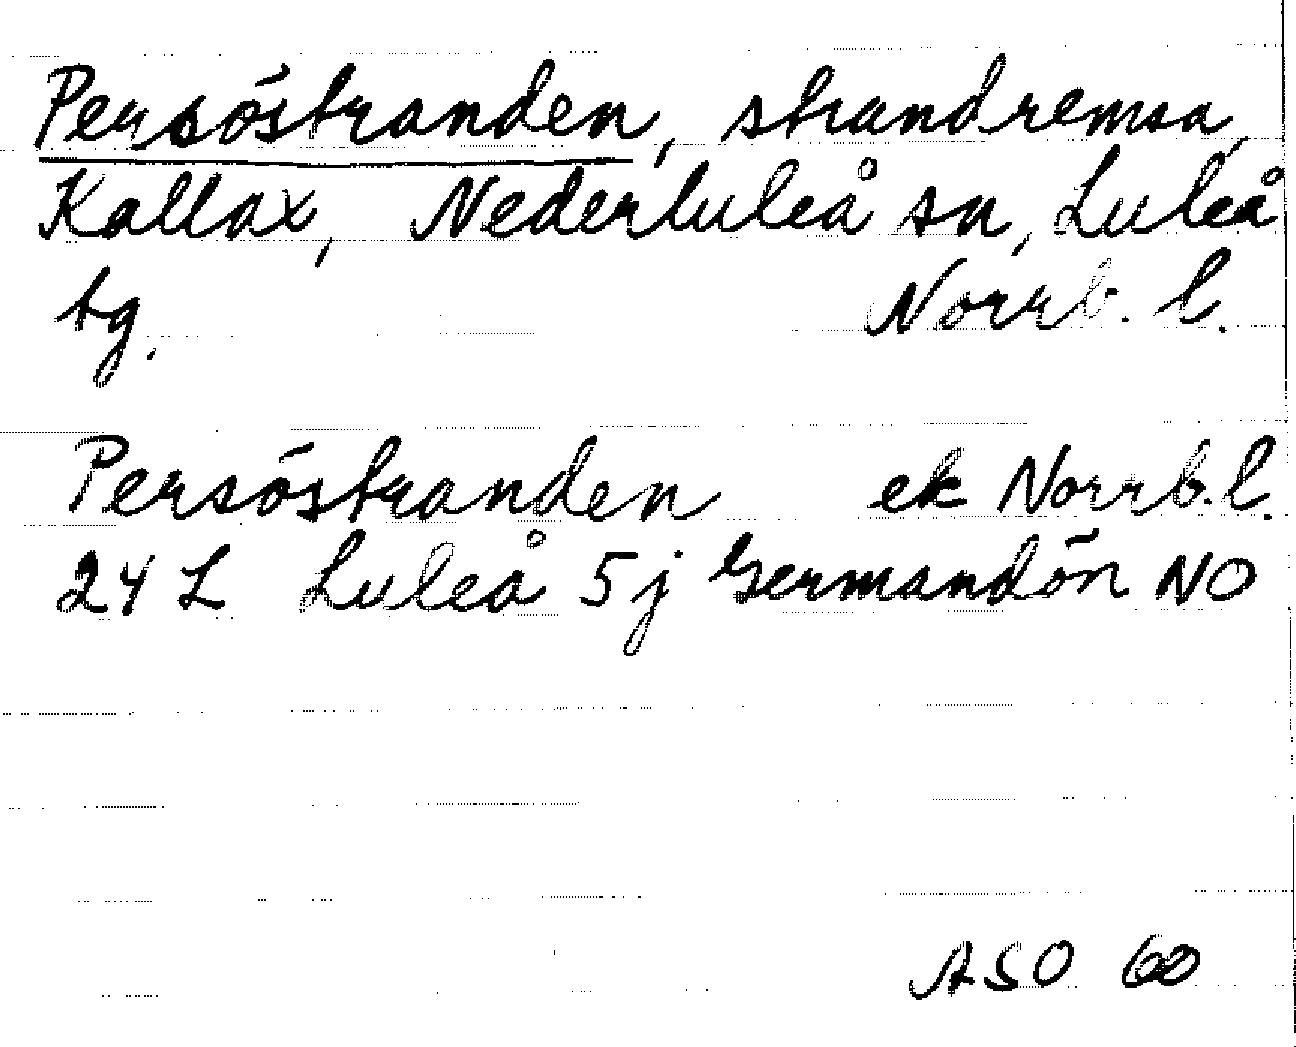 Persöstranden, strandremsa,
Kallax, Nederluleå sn, Luleå
tg. Norrb. l.
Persöstranden ek Norrb. l.
24 L Luleå 5j Germandön NO
ASO 60